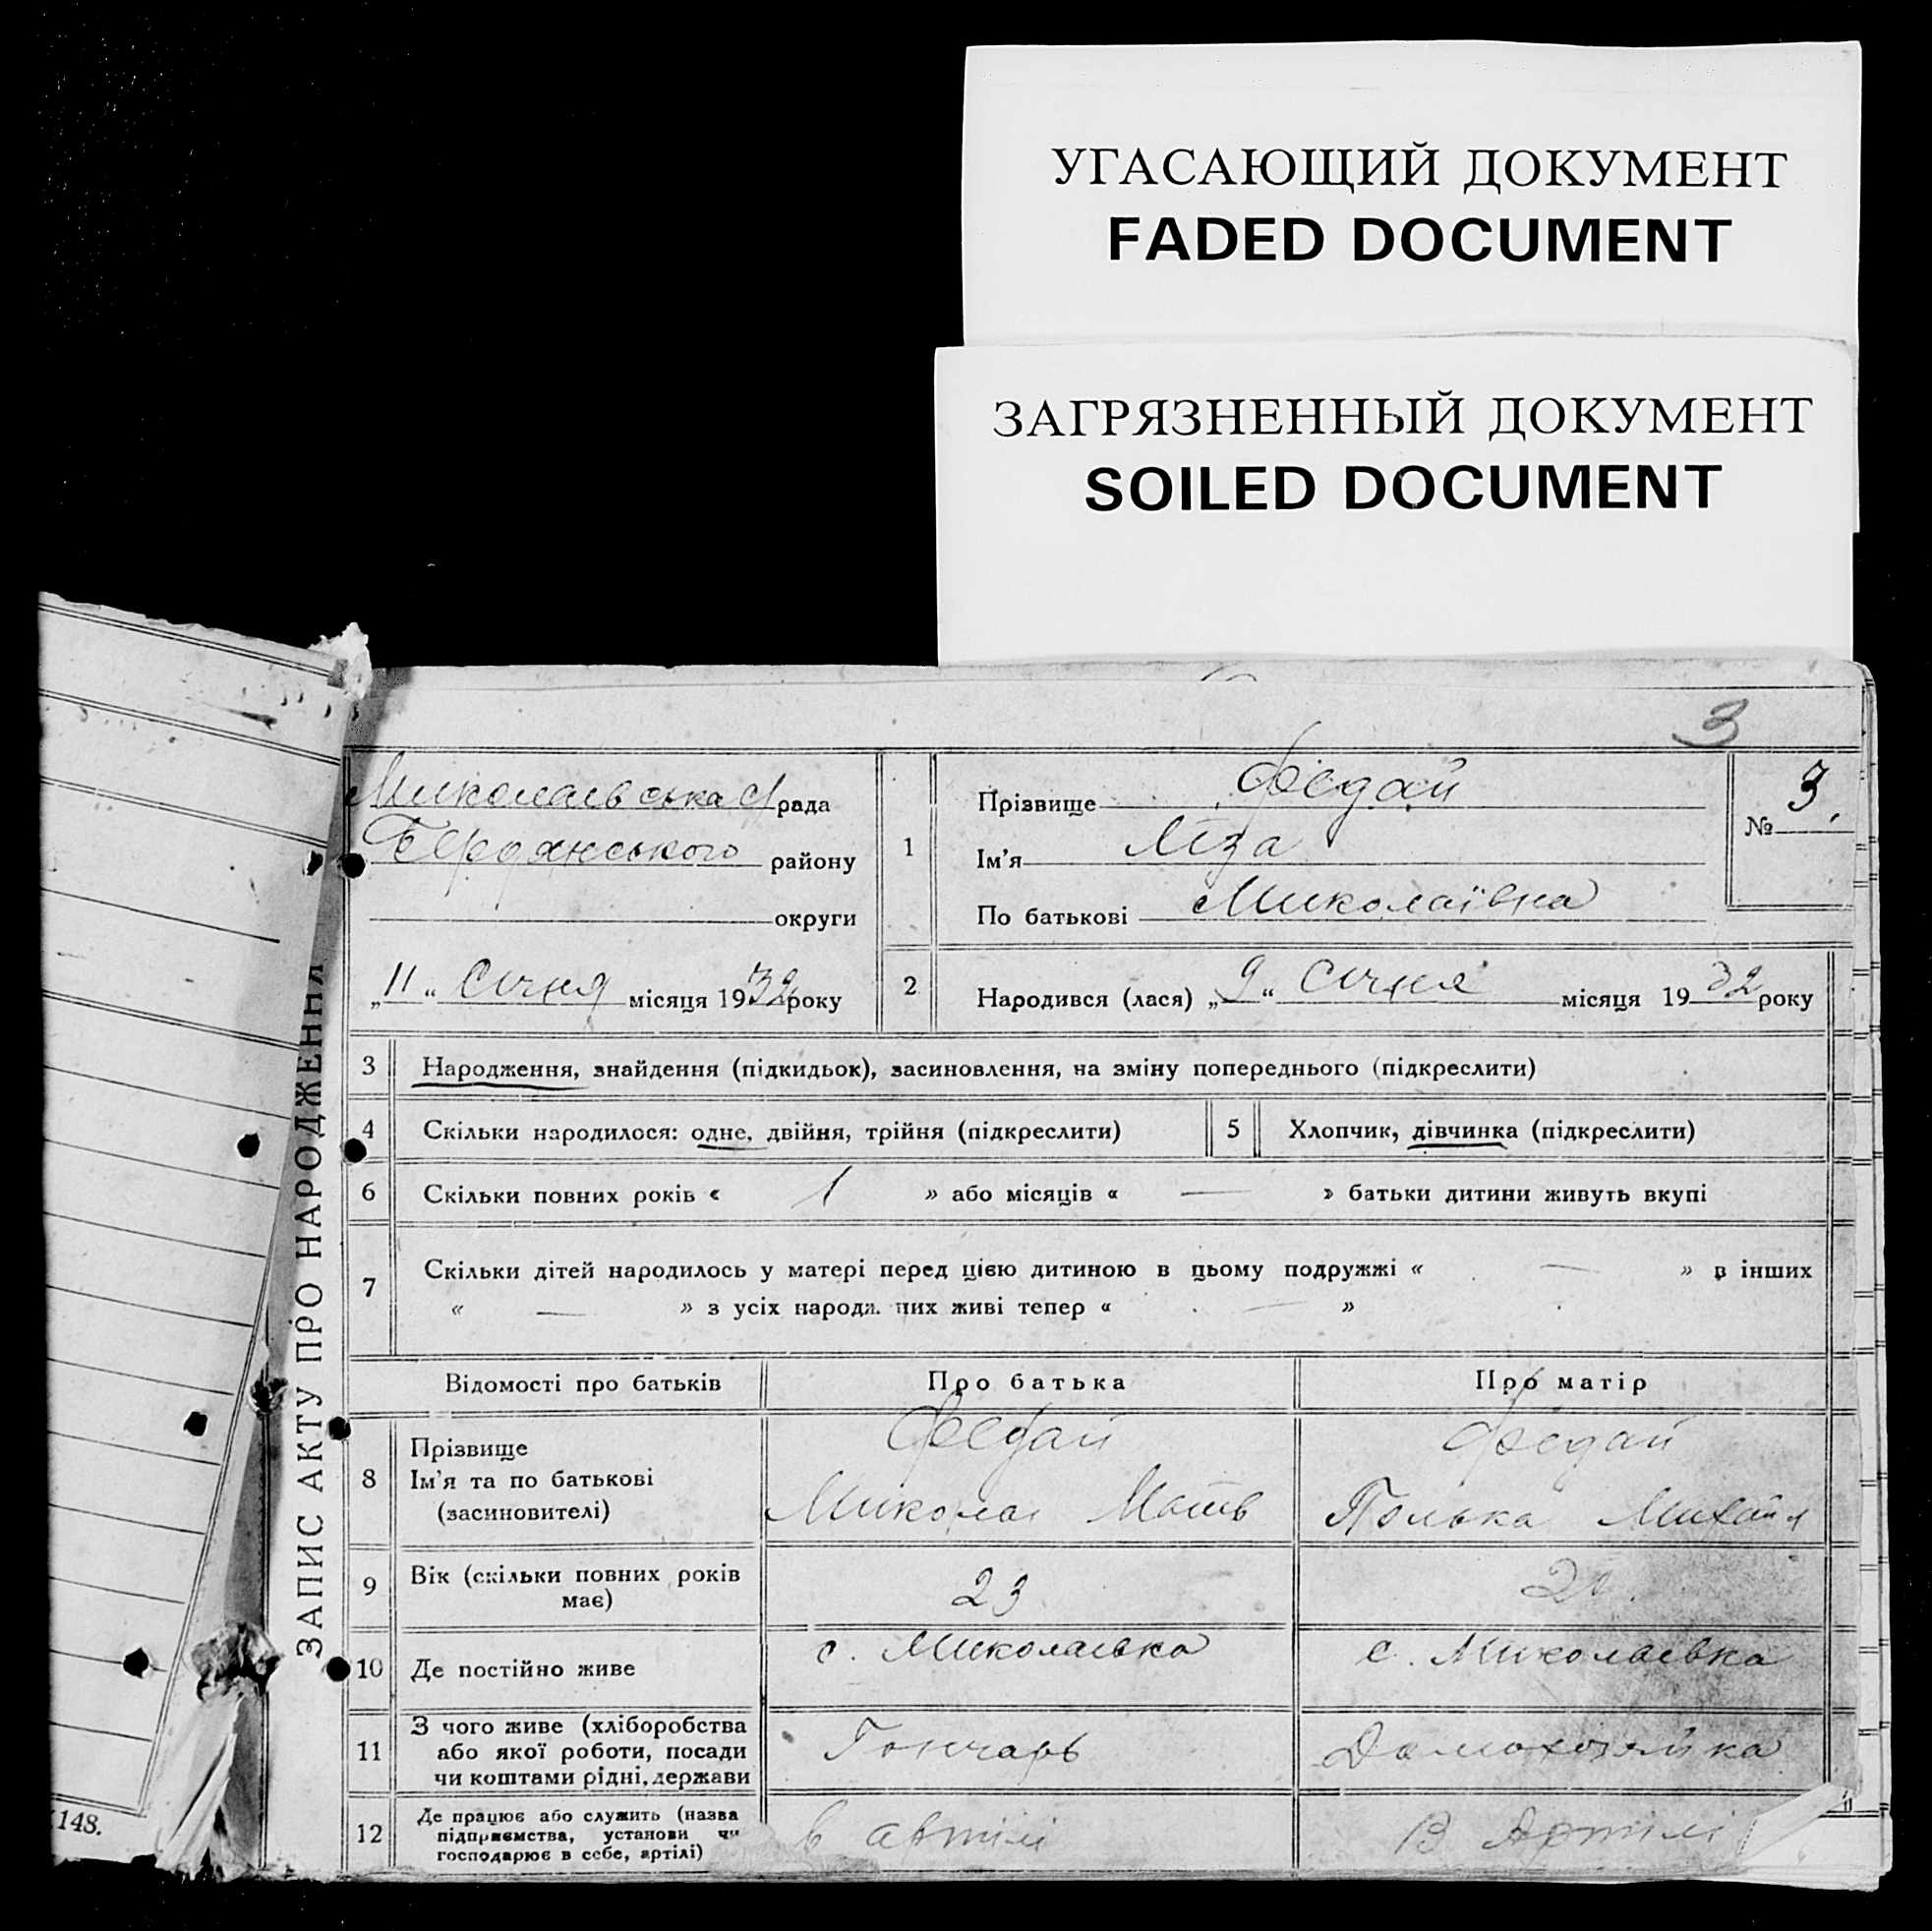 УГАСАЮЩИЙ ДОКУМЕНТ
FADED DOCUMENT
ЗАГРЯЗНЕННЫЙ ДОКУМЕНТ
SOILED DOCUMENT
3
ЗАПИС АКТУ ПРО НАРОДЖЕННЯ
Миколаевська с/рада
Бердянського району
округи
„11“ Січня місяця 1932 року
1
Прізвище Федай
Ім'я Ліза
По батькові Миколаївна
№ 3.
2
Народився (лася) „9“ Січня місяця 1932 року
3 Народження, знайдення (підкидьок), засиновлення, на зміну попереднього (підкреслити)
4 Скільки народилося: одне, двійня, трійня (підкреслити) 5 Хлопчик, дівчинка (підкреслити)
6 Скільки повних років « 1 » або місяців « — » батьки дитини живуть вкупі
7 Скільки дітей народилось у матері перед цією дитиною в цьому подружжі « — » в інших
« — » з усіх народ. них живі тепер « — »
Відомості про батьків Про батька Про матір
8 Прізвище Федай Федай
Ім'я та по батькові Микола Матв Полька Михайл
(засиновителі)
9 Вік (скільки повних років має) 23 20
10 Де постійно живе с. Миколаевка с. Миколаевка
11 З чого живе (хліборобства
або якої роботи, посади Гончарь Домохозяйка
чи коштами рідні, держави
12 Де працює або служить (назва
підприємства, установи чи в артілі В Артілі
господарює в себе, артілі)
148.